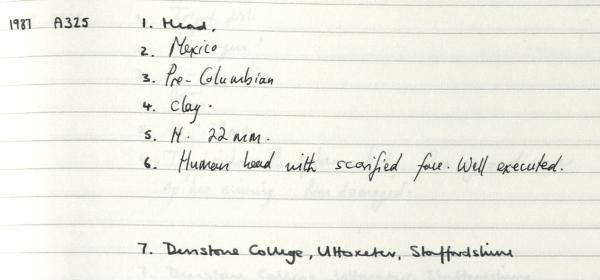 1987 A325 1. Head.
2. Mexico
3. Pre-Columbian
4. Clay.
5. H. 22mm.
6. Human head with scarified face. Well executed.
7. Denstone College, Uttoxeter, Staffordshire